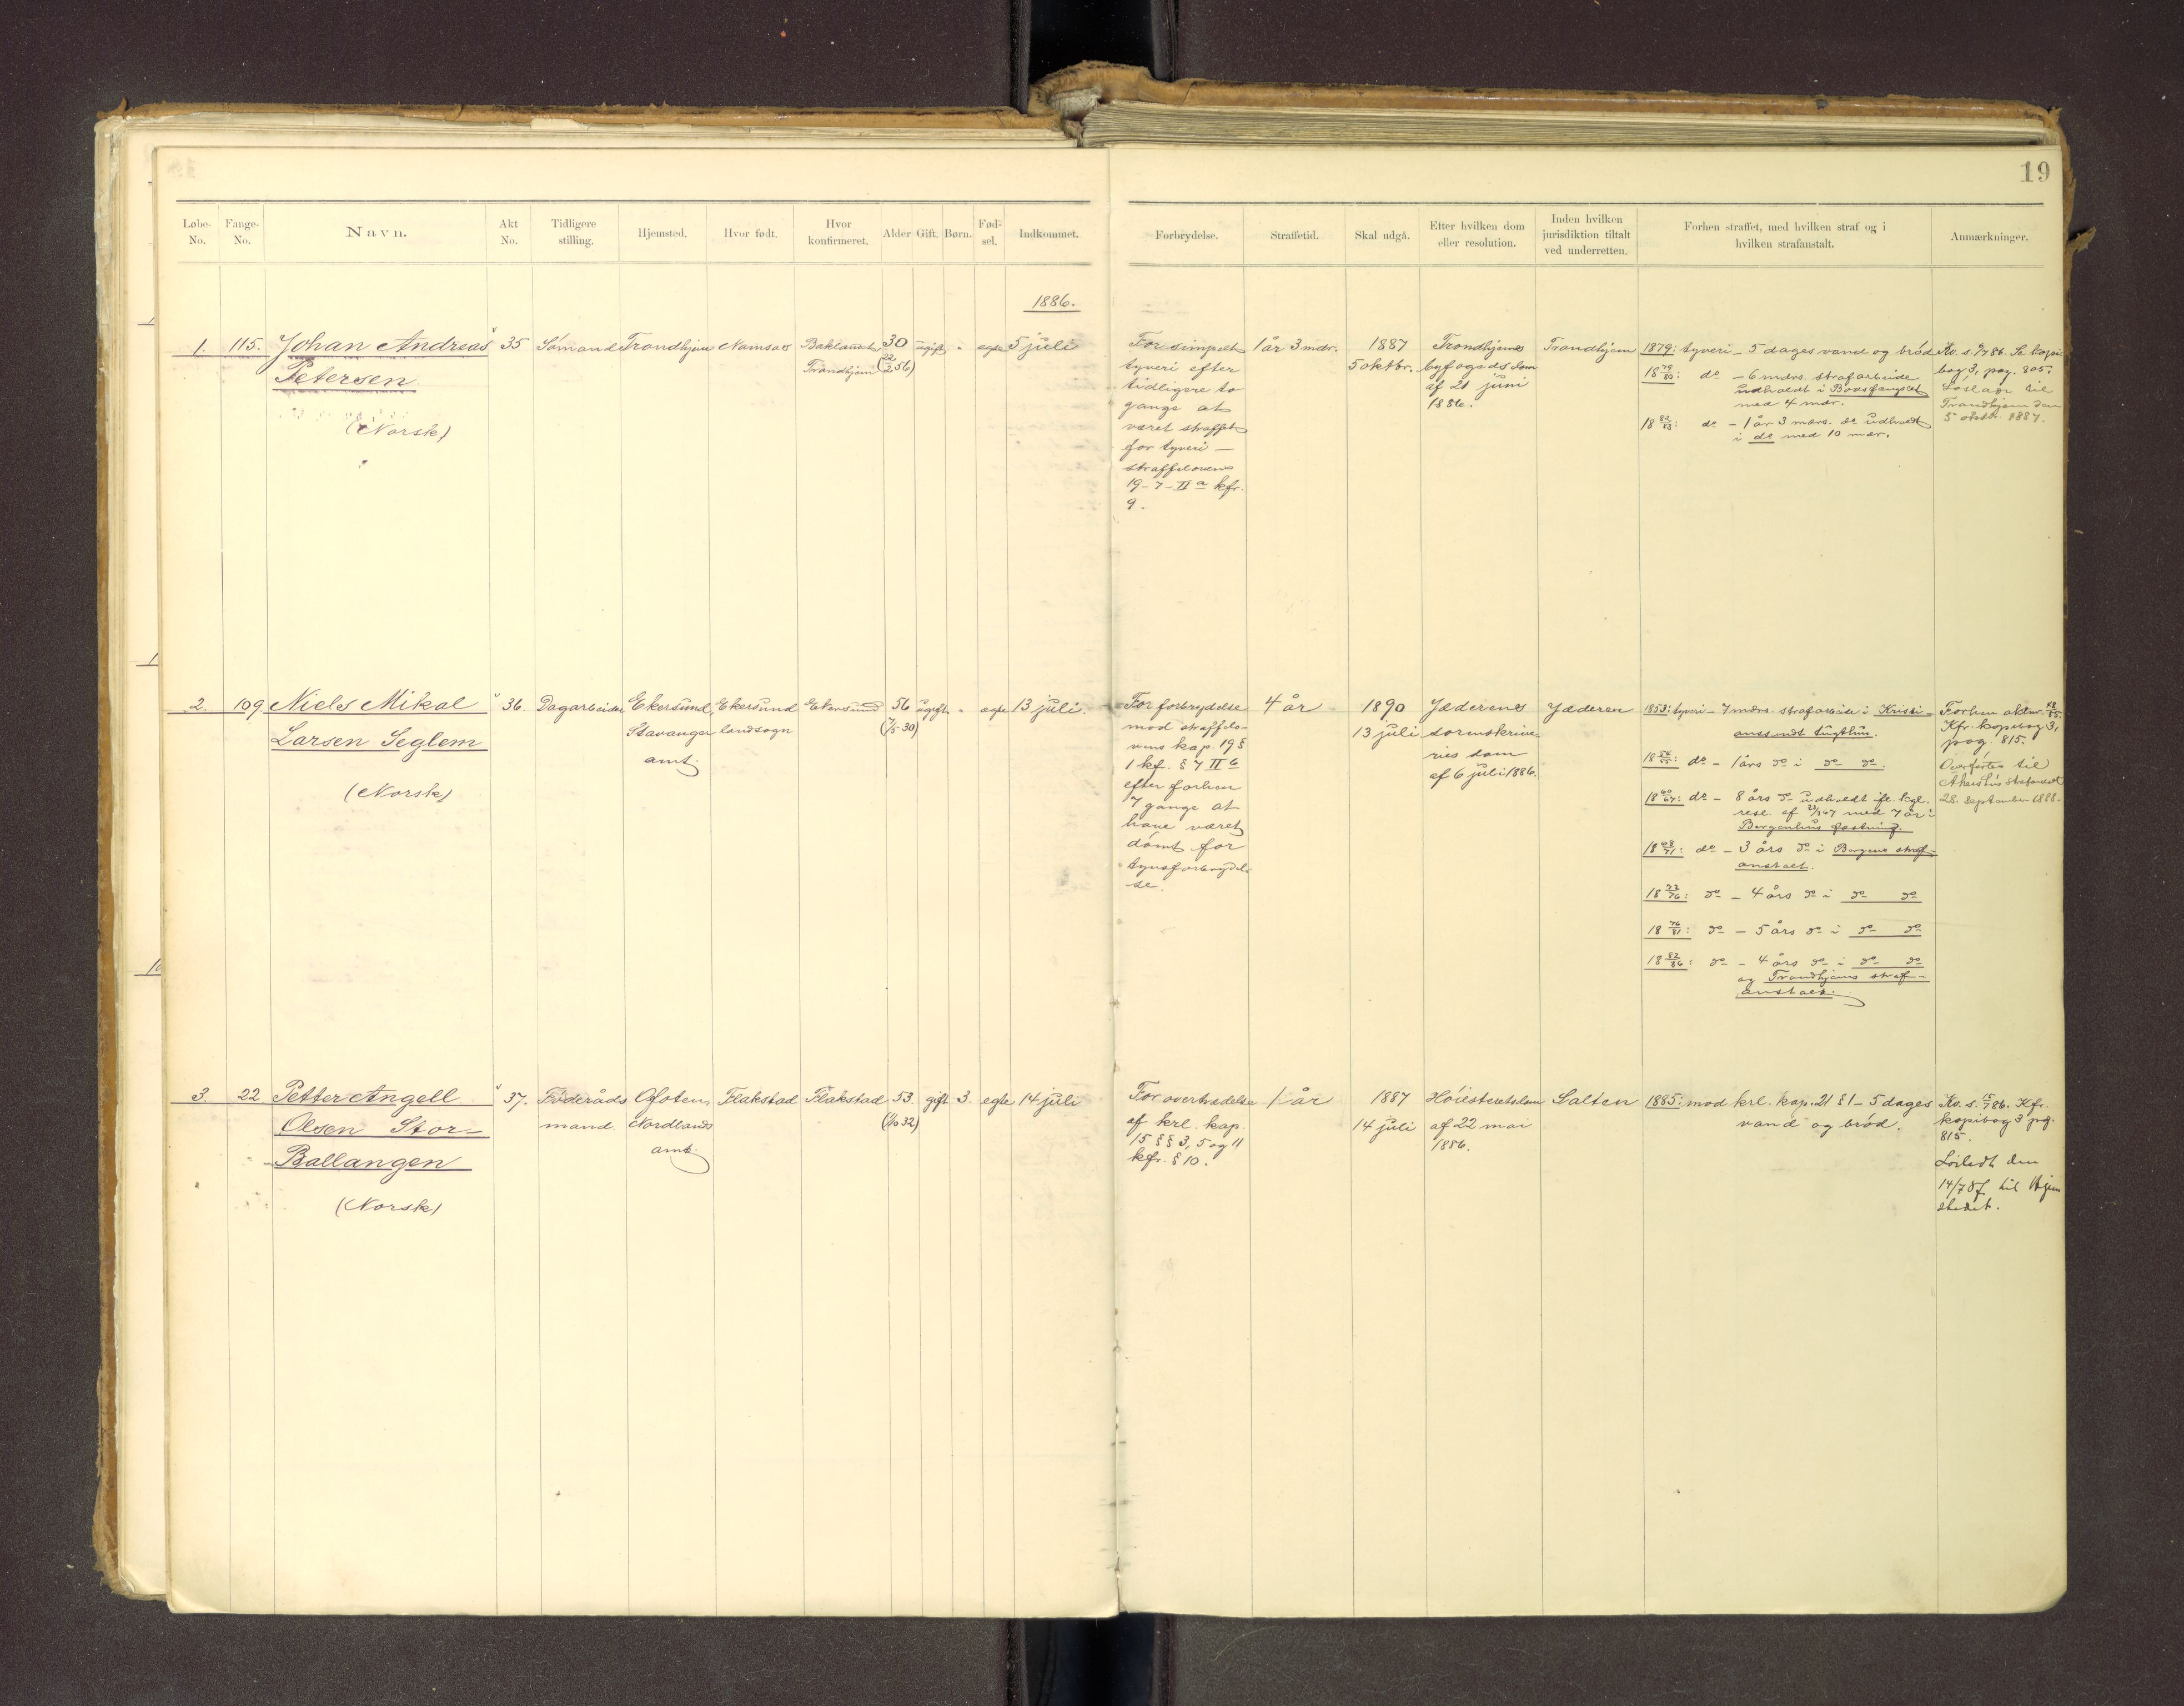 19
Løbe-No.
Fange-No.
Navn.
Akt No.
Tidligere stilling.
Hjemsted.
Hvor født.
Hvor konfirmeret.
Alder
Gift.
Børn.
Fød-sel.
Indkommet.
Forbrydelse.
Straffetid.
Skal udgå.
Efter hvilken dom eller resolution.
Inden hvilken jurisdiktion tiltalt ved underretten.
Forhen straffet, med hvilken straf og i hvilken strafanstalt.
Anmærkninger.
1886.
1.
115.
Johan Andreas
Petersen
(Norsk)
35
Sømand
Trondhjem
Namsos
Baklandet
Trondhjem
30
(22/2 56)
ugift
"
egte
5 juli
For simpelt
tyveri efter
tidligere to
gange at
været straffet
for tyveri —
straffelovens
19-7-II a kfr.
9.
1 år 3 mdr.
1887
5 oktbr.
Trondhjems
byfogeds dom
af 21 juni
1886.
Trondhjem
1879: tyveri - 5 dages vand og brød
18 79/80: do - 6 mdrs. strafarbeide
udholdt i Bodsfængslet
med 4 mdr.
18 82/83: do - 1 år 3 mdrs. do udholdt
i do med 10 mdr.
bog 3, pag. 805.
Løsladt til
Trondhjem den
5 oktbr. 1887.
2.
109.
Niels Mikal
Larsen Seglem
(Norsk)
36.
Dagarbeider
Ekersund,
Stavanger
amt.
Ekersund
landsogn
Ekersund
56
(7/5 30)
ugift
"
egte
13 juli.
For forbrydelse
mod straffelo-
vens kap. 19 §
1 kf. § 7 II b
efter forhen
7 gange at
have været
dømt for
tyvsforbrydel-
se.
4 år
1890
13 juli
Jæderens
sorenskrive-
ries dom
af 6 juli 1886.
Jæderen
1853: tyveri - 7 mdrs. strafarbeide i Kristi-
anssands tugthus.
do - 1 års do i do do.
18 60/67: do - 8 års do udholdt ifl. kgl.
resl. af med 7 år i
Bergenhus fæstning.
18 68/71: do - 3 års do i Bergens straf-
anstalt.
18 72/76: do - 4 års do i do do
18 76/81: do - 5 års do i do do
18 82/86: do - 4 års do i do do
og Trondhjems straf-
anstalt.
Forhen aktnr.
Kfr. kopibog 3,
pag. 815.
Overført til
Akershus strafanstalt
28. september 1888.
3.
22.
Petter Angell
Olsen Stor-
Ballangen
(Norsk)
37.
Føderåds
mand
Ofoten,
Nordlands
amt.
Flakstad
Flakstad
53.
gift
3.
egte
14 juli
For overtrædelse
af krl. kap.
15 §§ 3, 5 og 11
kfr. § 10.
1 år
1887
14 juli
Høiesteretsdom
af 22 mai
1886.
Salten
1885: mod krl. kap. 21 § 1 - 5 dages
vand og brød.
Ko. s. 15/7 86. Kfr.
kopibog 3 pag.
815.
Løsladt den
14/7 87 til Hjem
stedet.